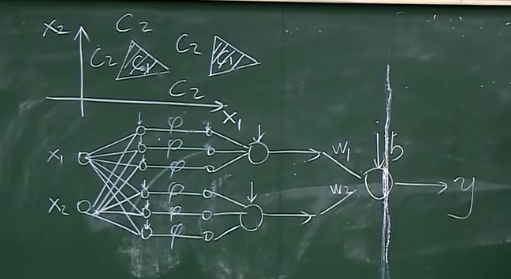 x₂
C₂
C₂
C₁
C₂
C₁
C₂
x₁
φ
φ
φ
φ
φ
φ
x₁
x₂
w₁
w₂
b
y